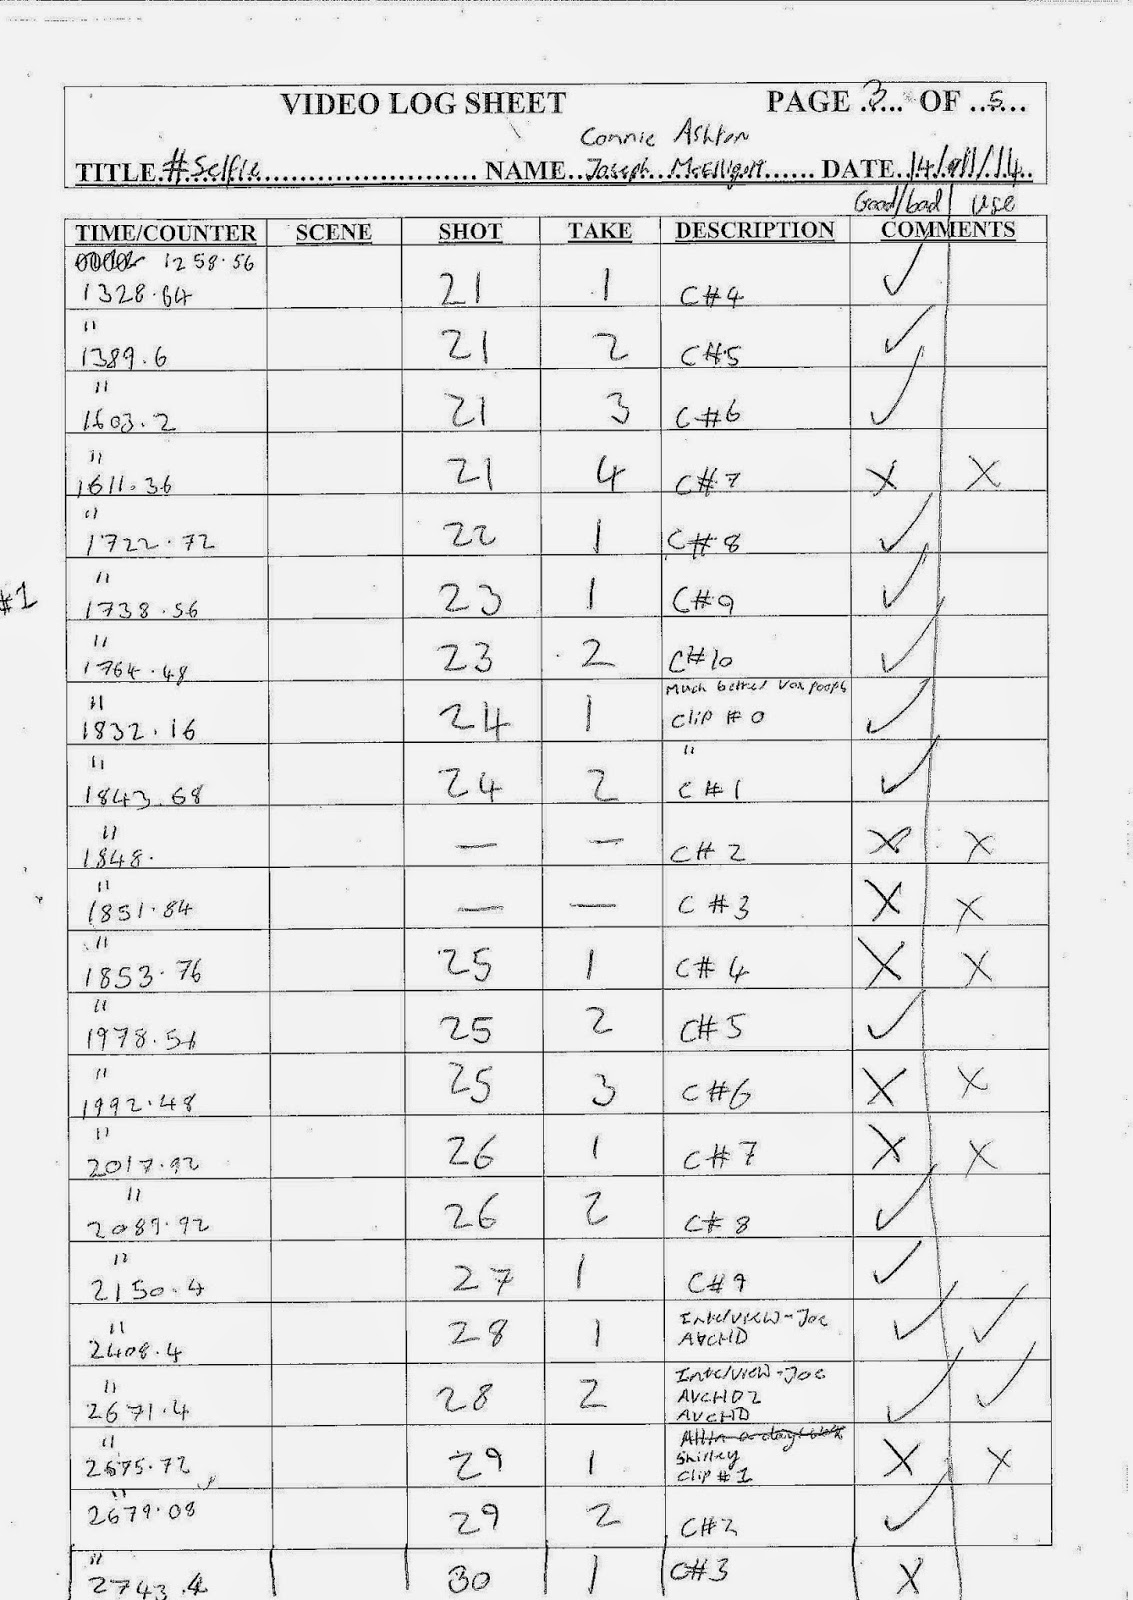 VIDEO LOG SHEET PAGE .3... OF ..5...
Connie Ashton
TITLE.#Selfie........................ NAME..Joseph McElligott...... DATE..14/ /14..
Good/bad use
TIME/COUNTER SCENE SHOT TAKE DESCRIPTION COMMENTS
1258.56
1328.64 21 1 C#4 ✓
"
1389.6 21 2 C#5 ✓
"
1603.2 21 3 C#6 ✓
"
1611.36 21 4 C#7 X X
"
1722.72 22 1 C#8 ✓
"
#1
1738.56 23 1 C#9 ✓
"
1764.48 23 2 C#10 ✓
" Much better Vox poops
1832.16 24 1 Clip #0 ✓
" "
1843.68 24 2 C#1 ✓
"
1848. — — C#2 X X
"
1851.84 — — C#3 X X
"
1853.76 25 1 C#4 X X
"
1978.56 25 2 C#5 ✓
"
1992.48 25 3 C#6 X X
"
2017.92 26 1 C#7 X X
"
2089.92 26 2 C#8 ✓
"
2150.4 27 1 C#9 ✓
" Interview-Joe
2408.4 28 1 AVCHD ✓ ✓
" Interview-Joe
AVCHD2
2671.4 28 2 AVCHD ✓ ✓
"
Shirley
2675.72 29 1 Clip #1 X X
"
2679.08 29 2 C#2 ✓
"
2743.4 30 1 C#3 X